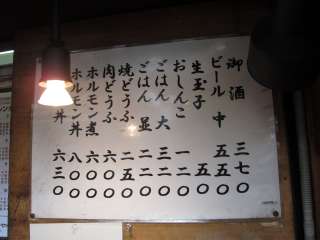 御酒 三七〇
ビール 中 五五〇
生玉子 五〇
おしんこ 一二〇
ごはん 大 三二〇
ごはん 並 二二〇
焼どうふ 二五〇
肉どうふ 六〇〇
ホルモン煮 六〇〇
ホルモン丼 八〇〇
丼 六三〇